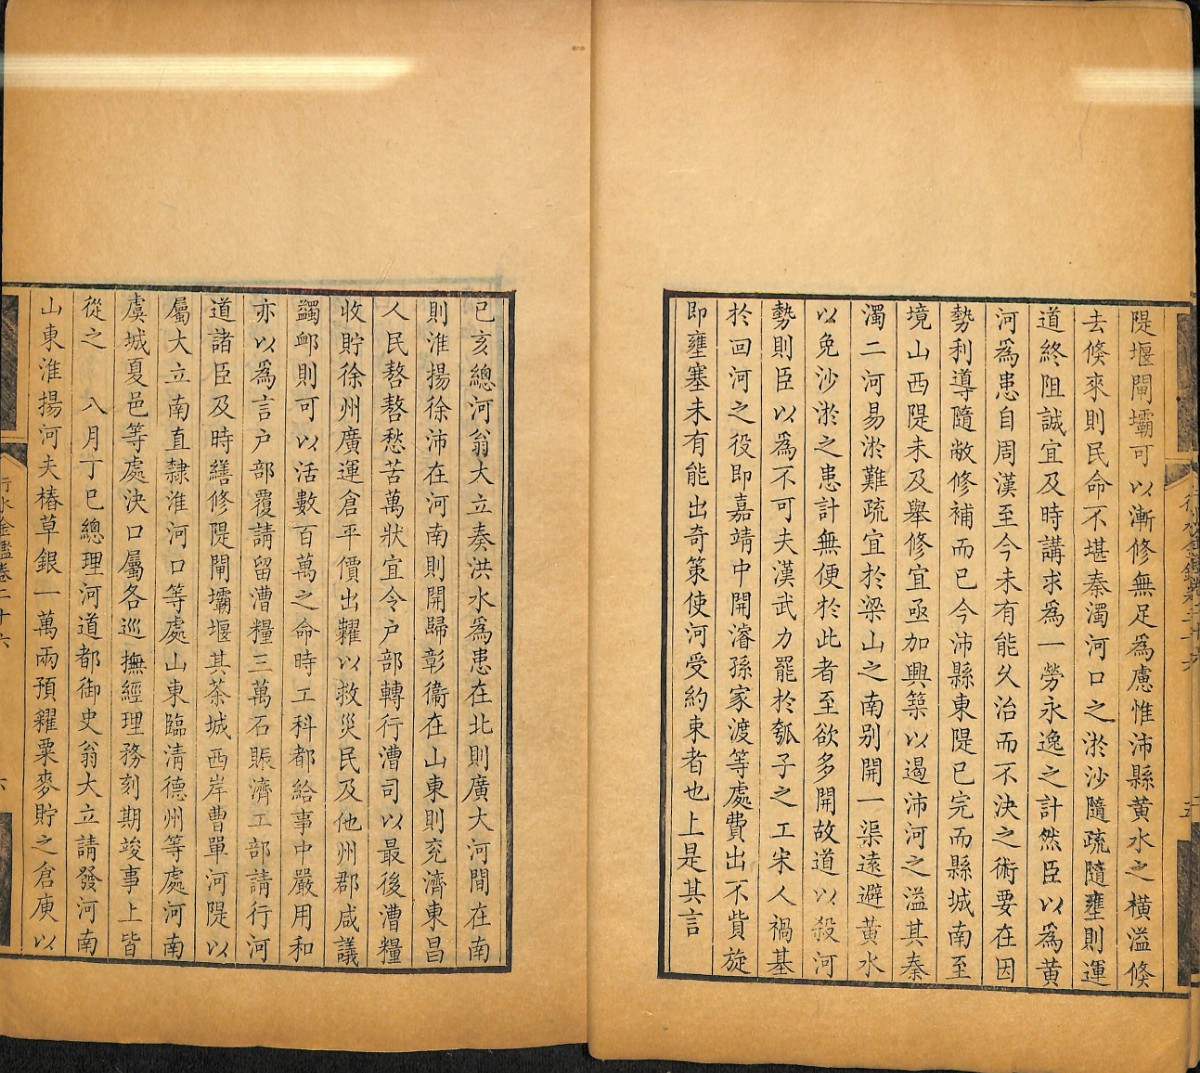 隄堰閘壩可以漸修無足為慮惟沛縣黄水之横溢倏
去倏來則民命不堪秦濁河口之淤沙隨疏隨壅則運
道終阻誠宜及時講求為一勞永逸之計然臣以為黄
河為患自周漢至今未有能久治而不決之術要在因
勢利導隨敝修補而已今沛縣東隄已完而縣城南至
境山西隄未及舉修宜亟加興築以遏沛河之溢其秦
濁二河易淤難疏宜於梁山之南别開一渠遠避黄水
以免沙淤之患計無便於此者至欲多開故道以殺河
勢則臣以為不可夫漢武力罷於瓠子之工宋人禍基
於回河之役即嘉靖中開濬孫家渡等處費出不貲旋
即壅塞未有能出奇策使河受約束者也上是其言
己亥總河翁大立奏洪水為患在北則廣大河間在南
則淮揚徐沛在河南則開歸彰衞在山東則兖濟東昌
人民嗸嗸愁苦萬狀宜令户部轉行漕司以最後漕糧
收貯徐州廣運倉平價出糶以救災民及他州郡咸議
蠲卹則可以活數百萬之命時工科都給事中嚴用和
亦以為言户部覆請留漕糧三萬石賑濟工部請行河
道諸臣及時繕修隄閘壩堰其茶城西岸曹單河隄以
屬大立南直隸淮河口等處山東臨清德州等處河南
虞城夏邑等處決口屬各巡撫經理務刻期竣事上皆
從之　八月丁巳總理河道都御史翁大立請發河南
山東淮揚河夫樁草銀一萬兩預糴粟麥貯之倉庾以
行水金鑑卷二十六
六